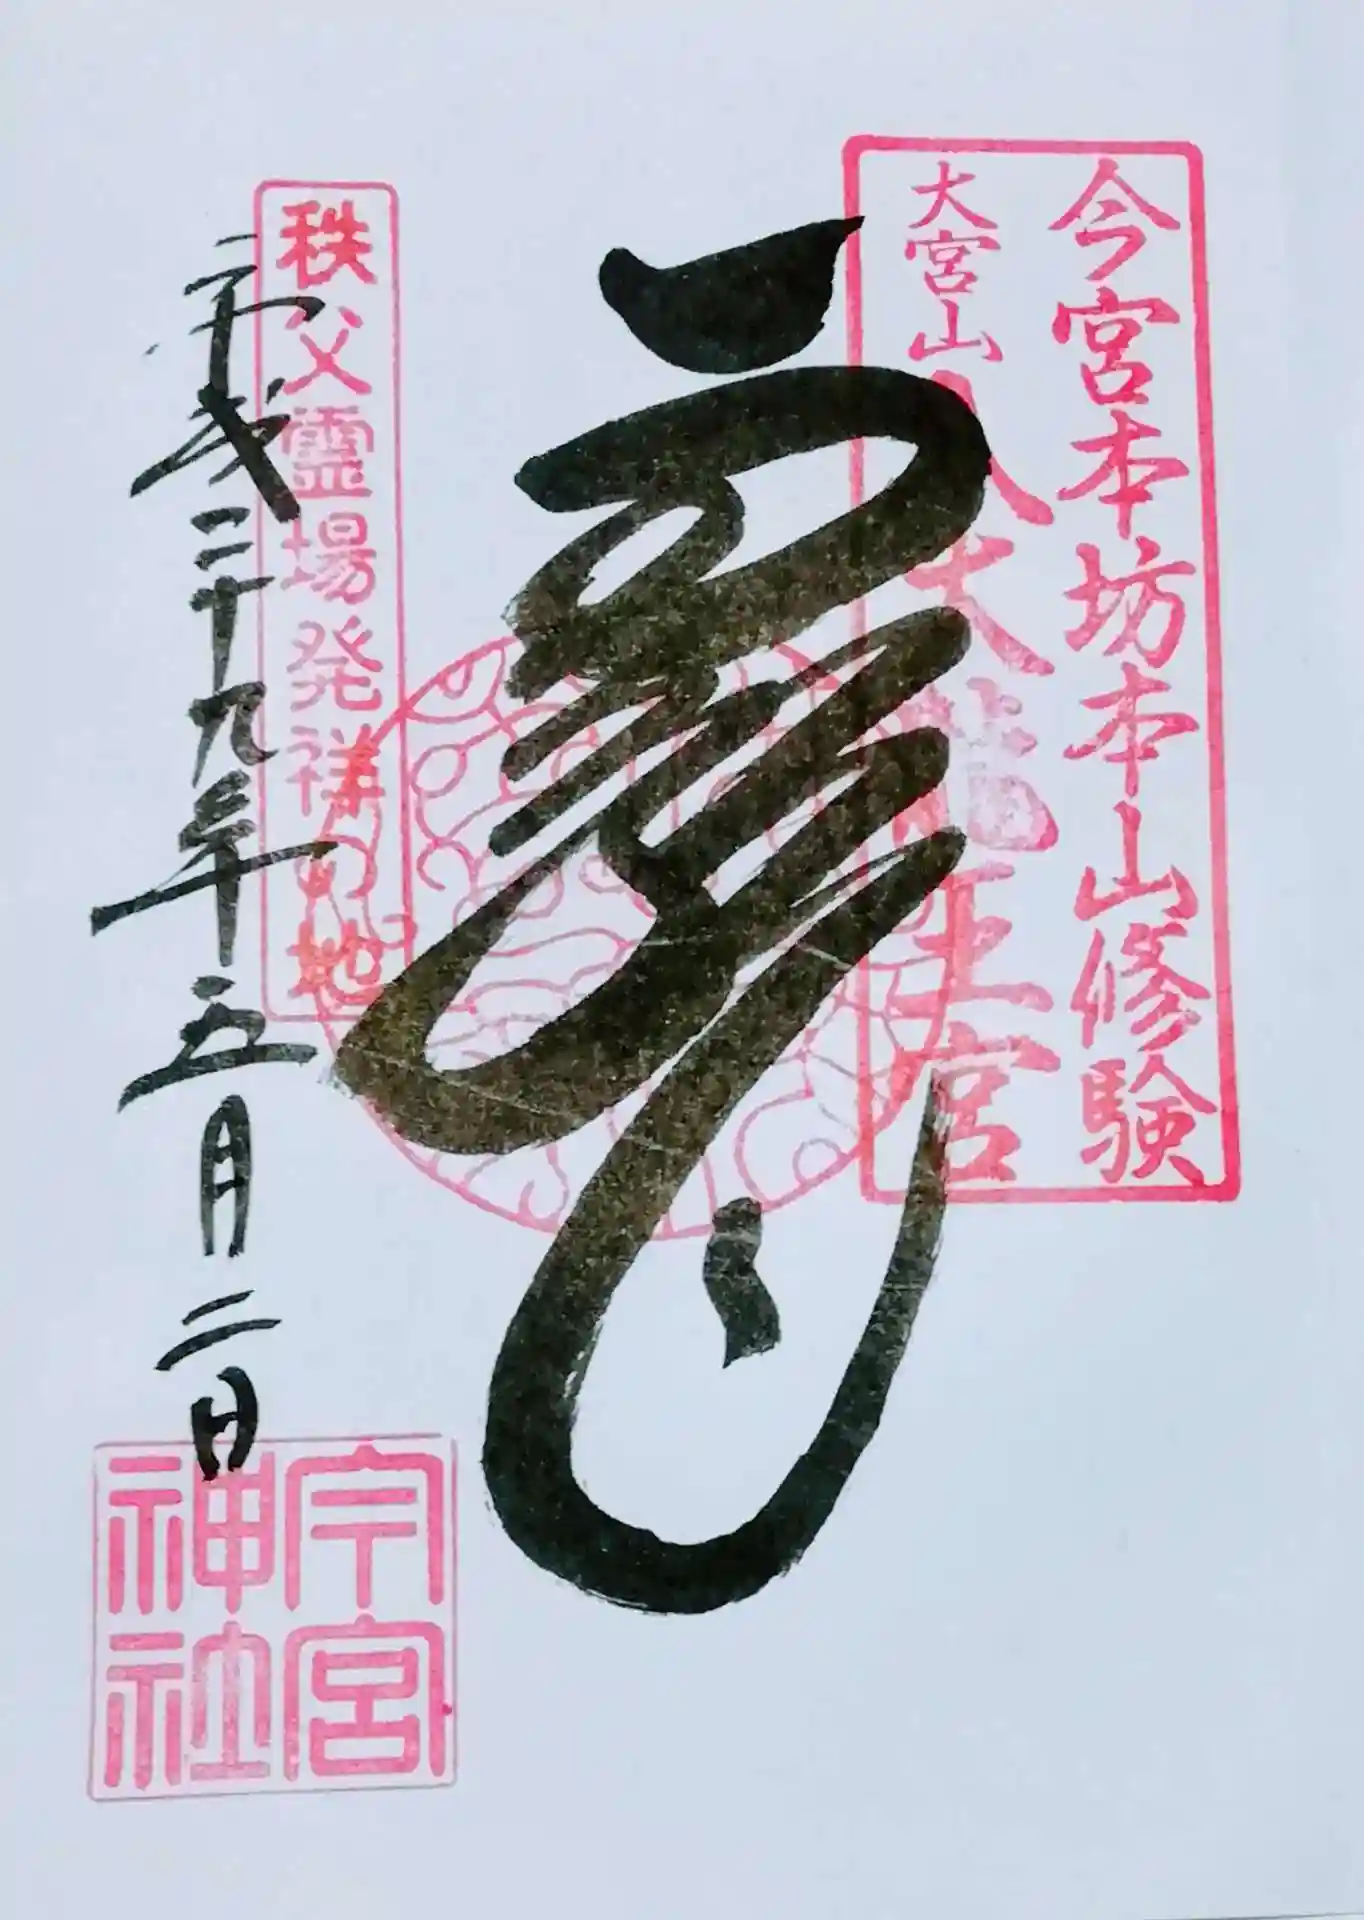 今宮本坊本山修験
大宮山 八大龍王宮
龍
秩父霊場発祥の地
平成二十九年五月二日
今宮神社